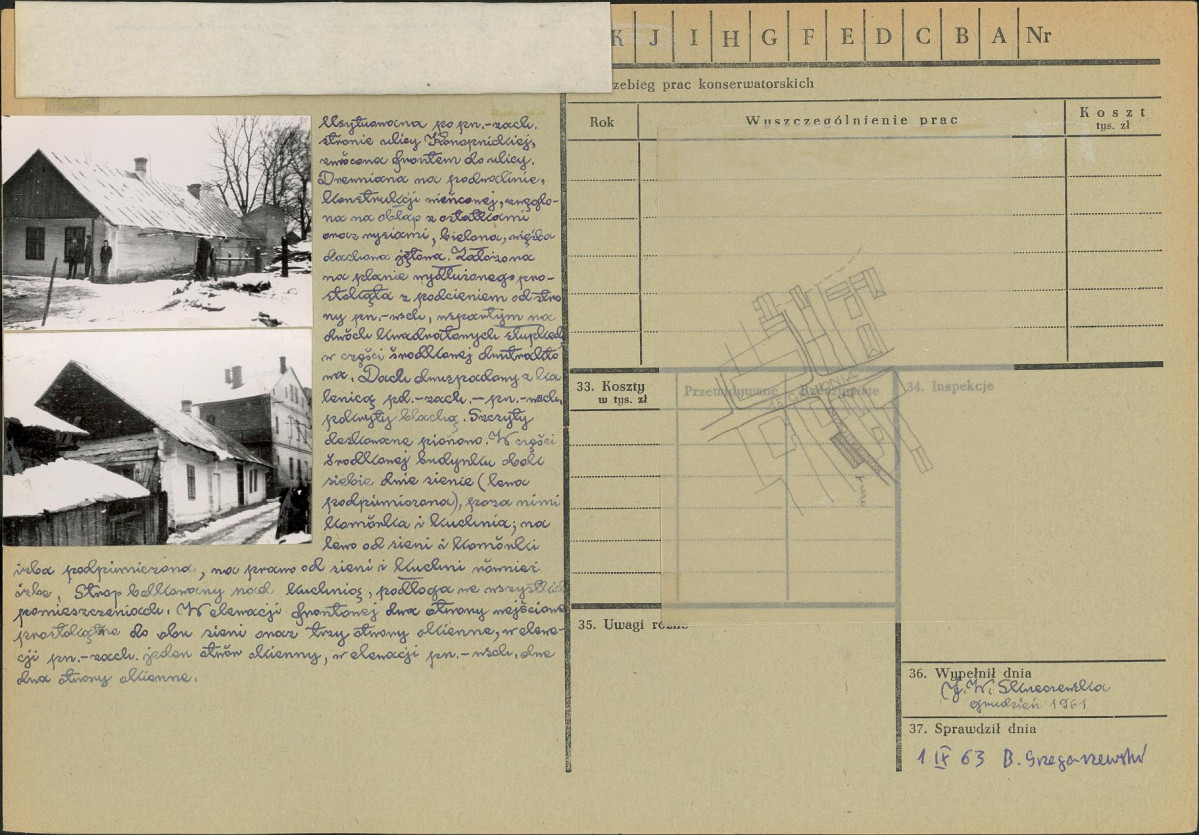 K J I H G F E D C B A Nr
zebieg prac konserwatorskich
Rok
Wyszczególnienie prac
Koszt
tys. zł
Usytuowana po pn.-zach.
stronie ulicy Konopnickiej,
zwrócona frontem do ulicy.
Drewniana na podwalinie,
konstrukcji wieńcowej, zwęgło-
na na obłap z ostatkami
oraz rysiami, bielona, więźba
dachowa jętowa. Założona
na planie wydłużonego pro-
stokąta z podcieniem od stro
ny pn.-wsch, wspartym na
dwóch kwadratowych słupkach
w części środkowej dwutrakto
wa. Dach dwuspadowy z ka
lenicą pd.-zach.-pn.-wsch,
pokryty blachą. Szczyty
deskowane pionowo. W części
środkowej budynku obok
siebie dwie sienie (lewa
podpiwniczona), poza nimi
komórka i kuchnia; na
lewo od sieni i komórki
izba podpiwniczona, na prawo od sieni i kuchni również
izba. Strop belkowany nad kuchnią, podłoga we wszystkich
pomieszczeniach. W elewacji frontowej dwa otwory wejściowe
prostokątne do obu sieni oraz trzy otwory okienne, w elewa-
cji pn.-zach. jeden otwór okienny, w elewacji pn.-wsch. dwa
dwa otwory okienne.
33. Koszty
w tys. zł
Przewidywane
Rzeczywiste
34. Inspekcje
35. Uwagi różne
36. Wypełnił dnia
grudzień 1961
37. Sprawdził dnia
1 IX 63 B.